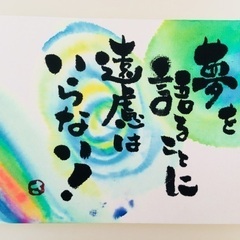 夢を
語ることに
遠慮は
いらない！